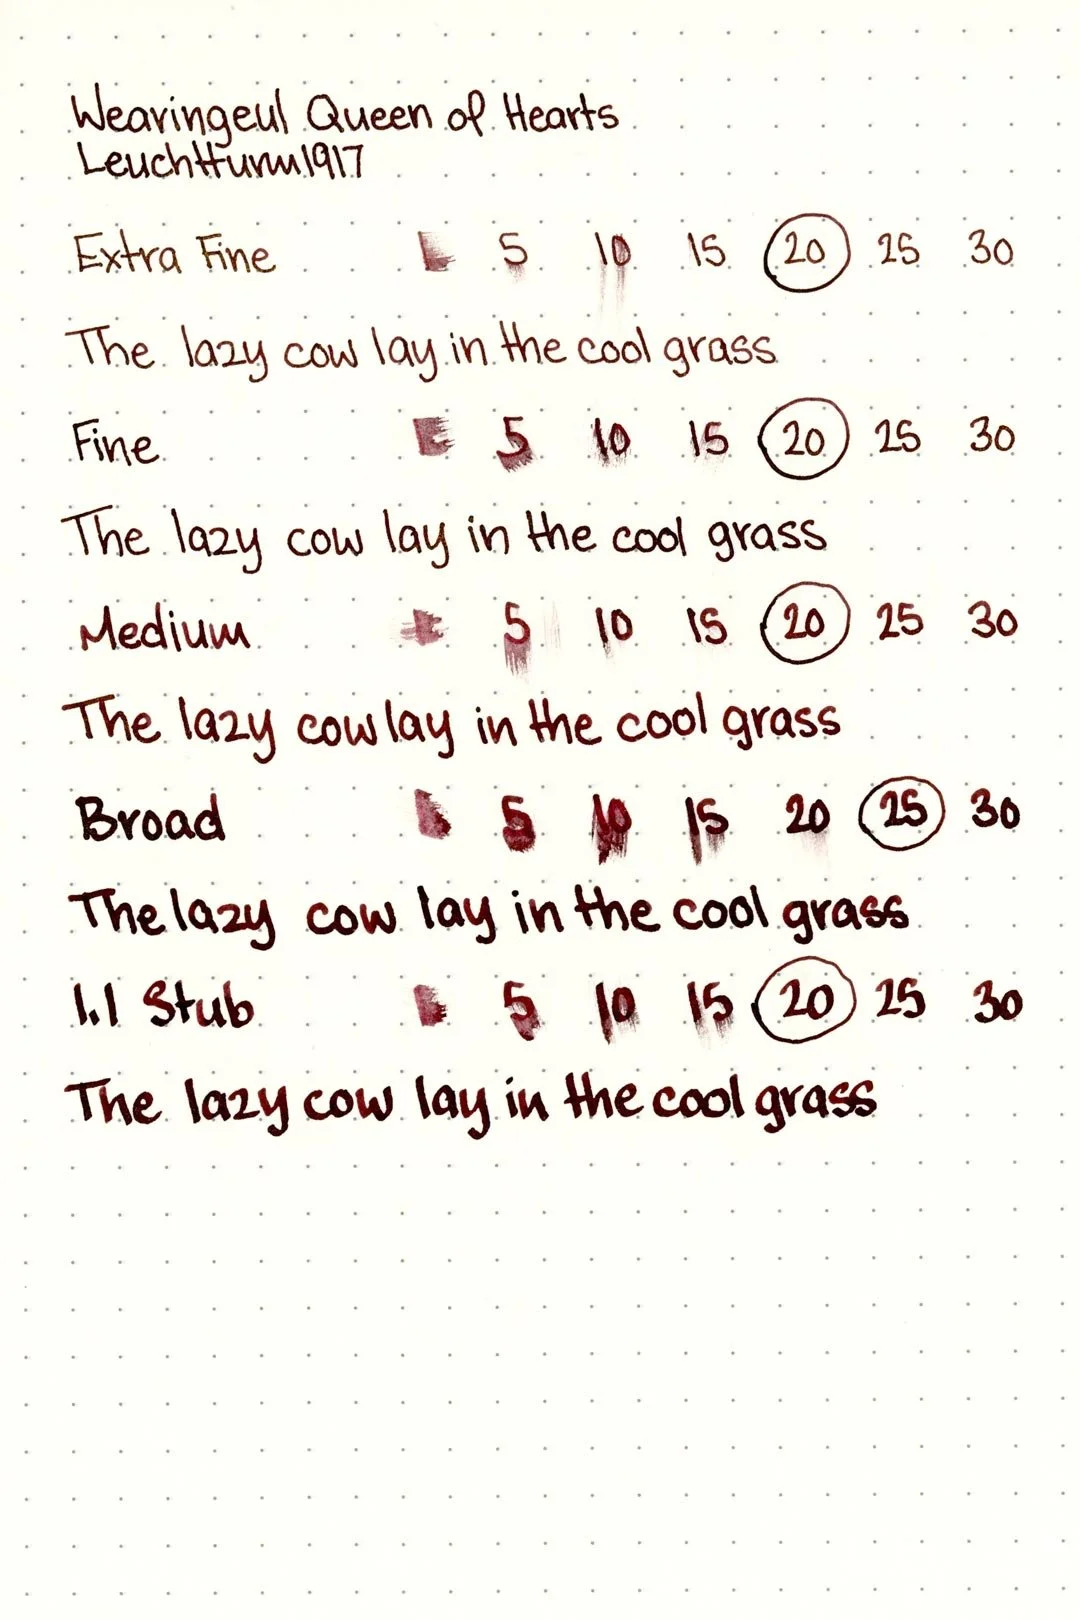 Wearingeul Queen of Hearts
Leuchtturm1917
Extra Fine 5 10 15 20 25 30
The lazy cow lay in the cool grass
Fine 5 10 15 20 25 30
The lazy cow lay in the cool grass
Medium 5 10 15 20 25 30
The lazy cow lay in the cool grass
Broad 5 10 15 20 25 30
The lazy cow lay in the cool grass
1.1 Stub 5 10 15 20 25 30
The lazy cow lay in the cool grass